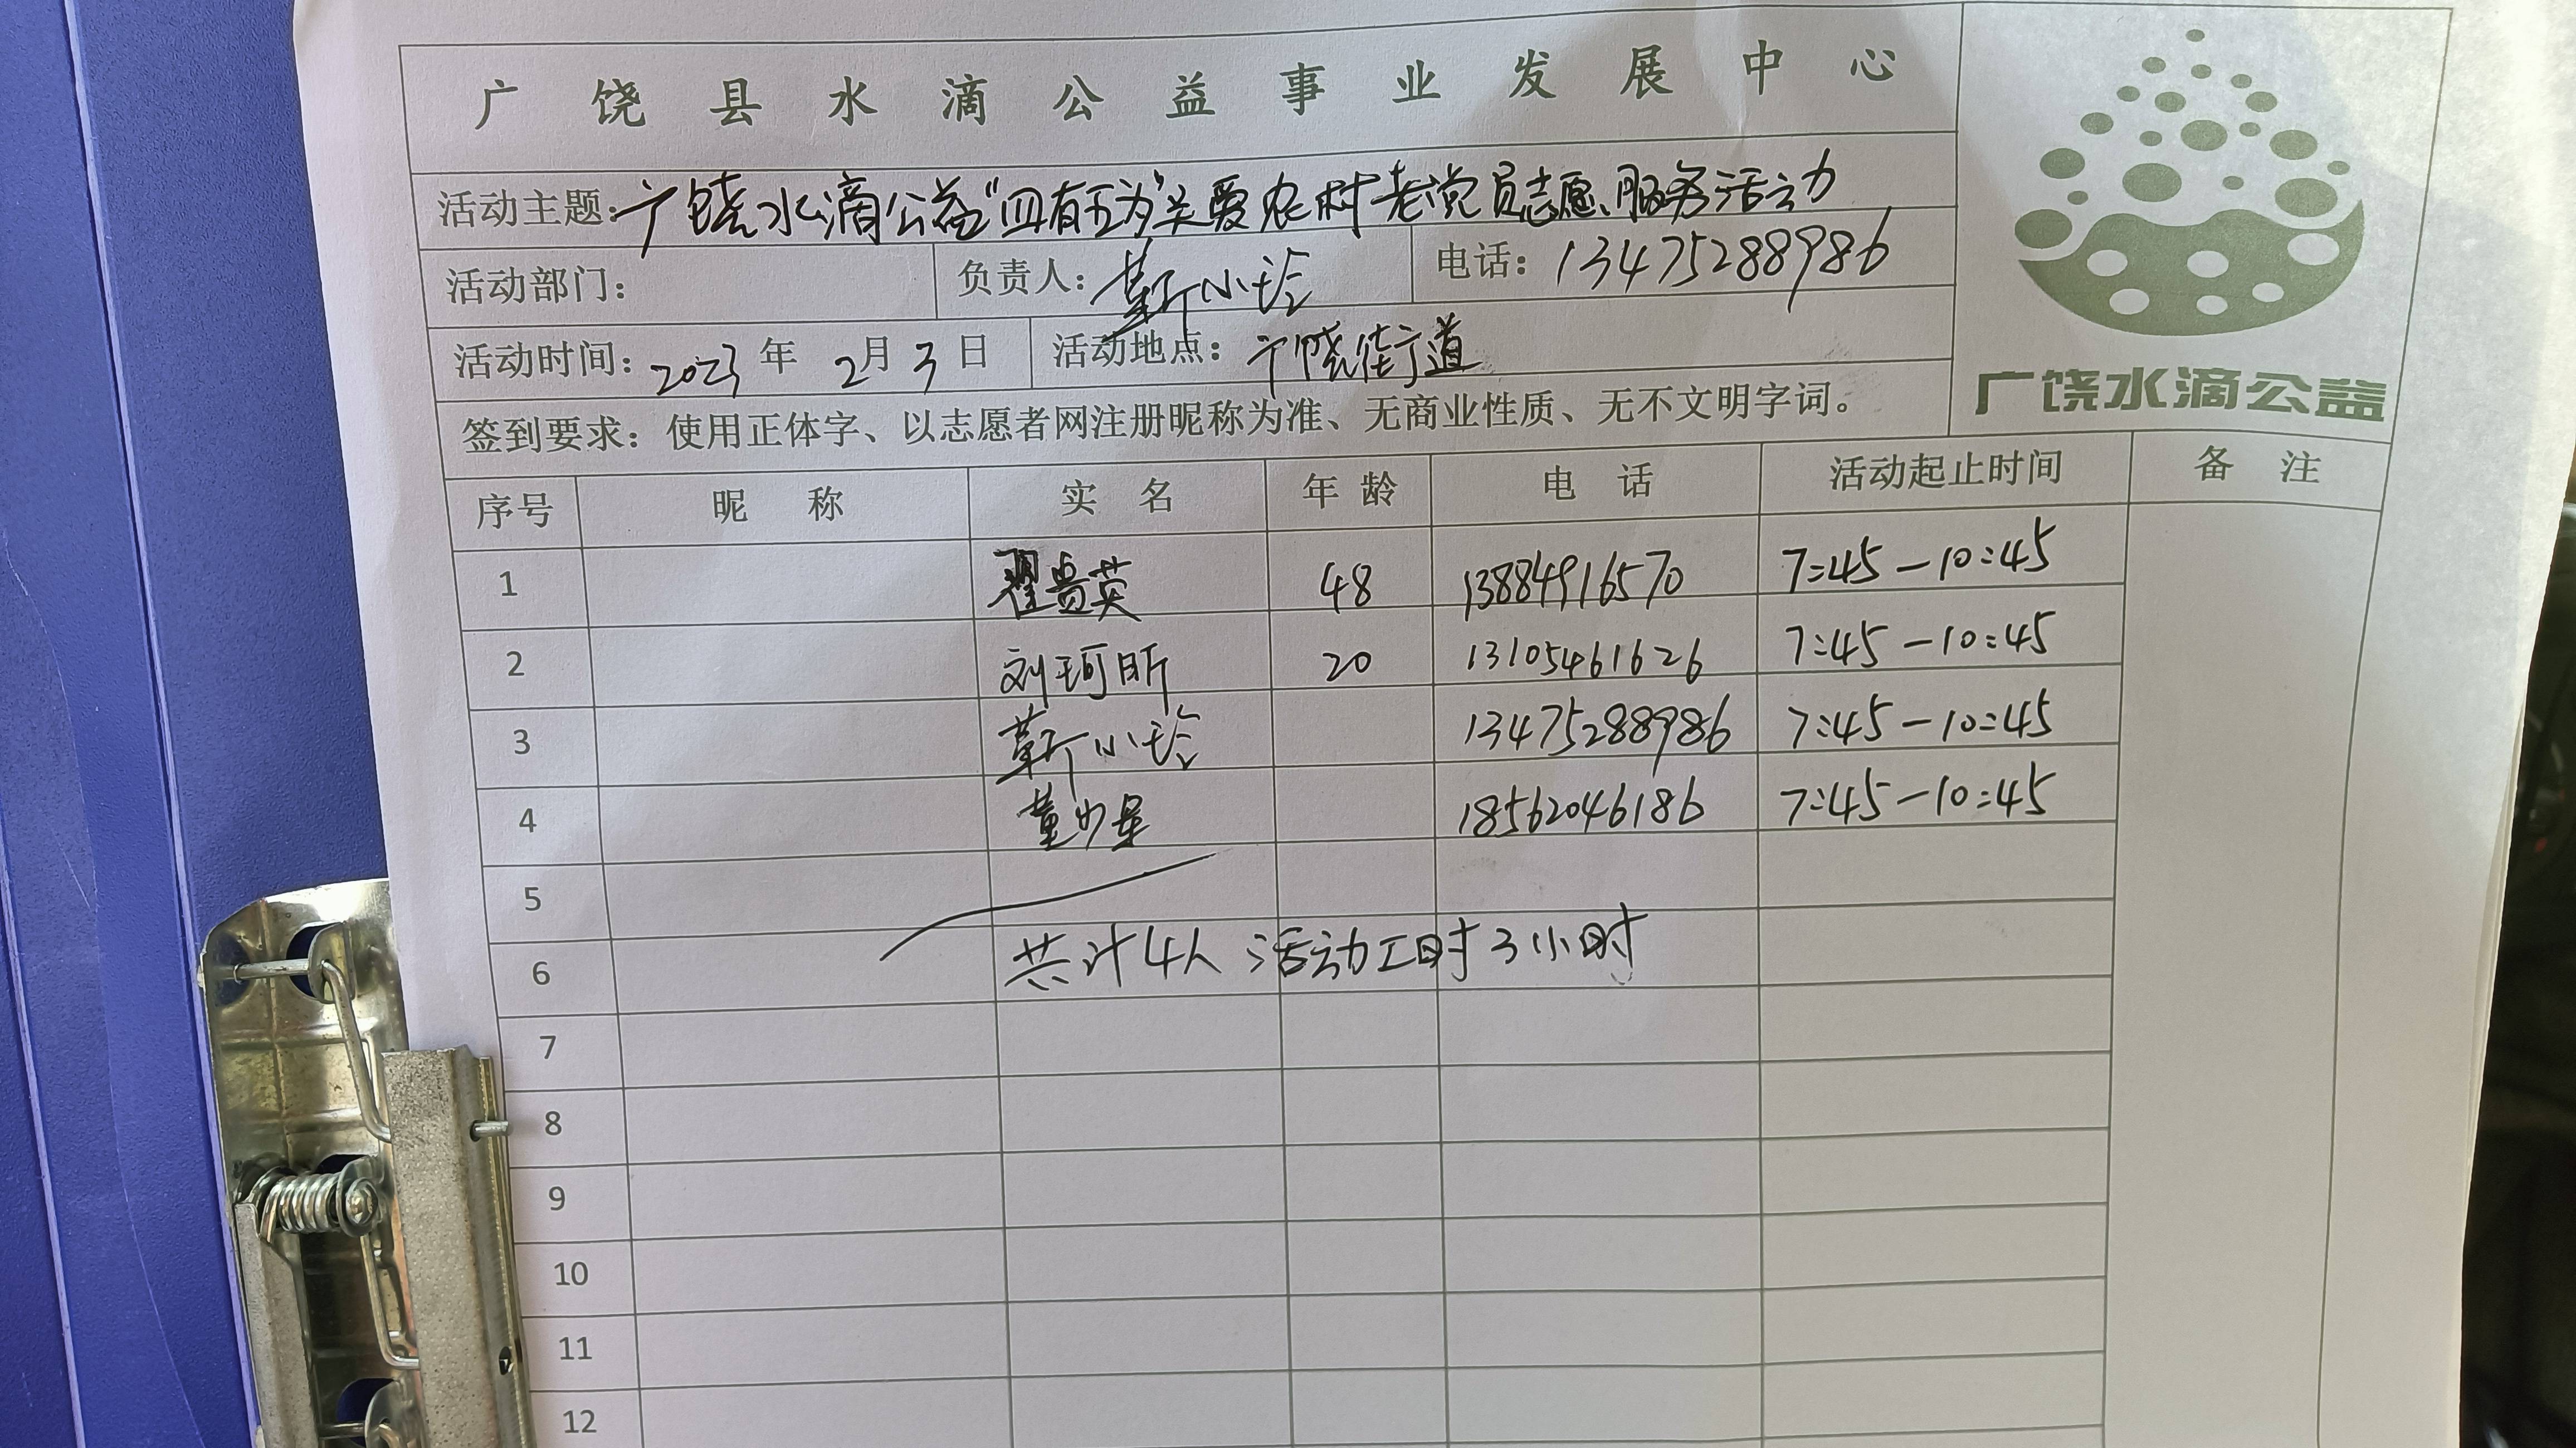 广饶县水滴公益事业发展中心
活动主题：广饶水滴公益“四有五为”关爱农村老党员志愿服务活动
活动部门： 负责人：靳小玲 电话：13475288986
活动时间：2023年2月3日 活动地点：广饶街道
广饶水滴公益
签到要求：使用正体字、以志愿者网注册昵称为准、无商业性质、无不文明字词。
序号 昵称 实名 年龄 电话 活动起止时间 备注
1 翟贵英 48 13884916570 7:45-10:45
2 刘珂昕 20 13105461626 7:45-10:45
3 靳小玲 13475288986 7:45-10:45
4 董少星 18562046186 7:45-10:45
5
6 共计4人 活动工时3小时
7
8
9
10
11
12